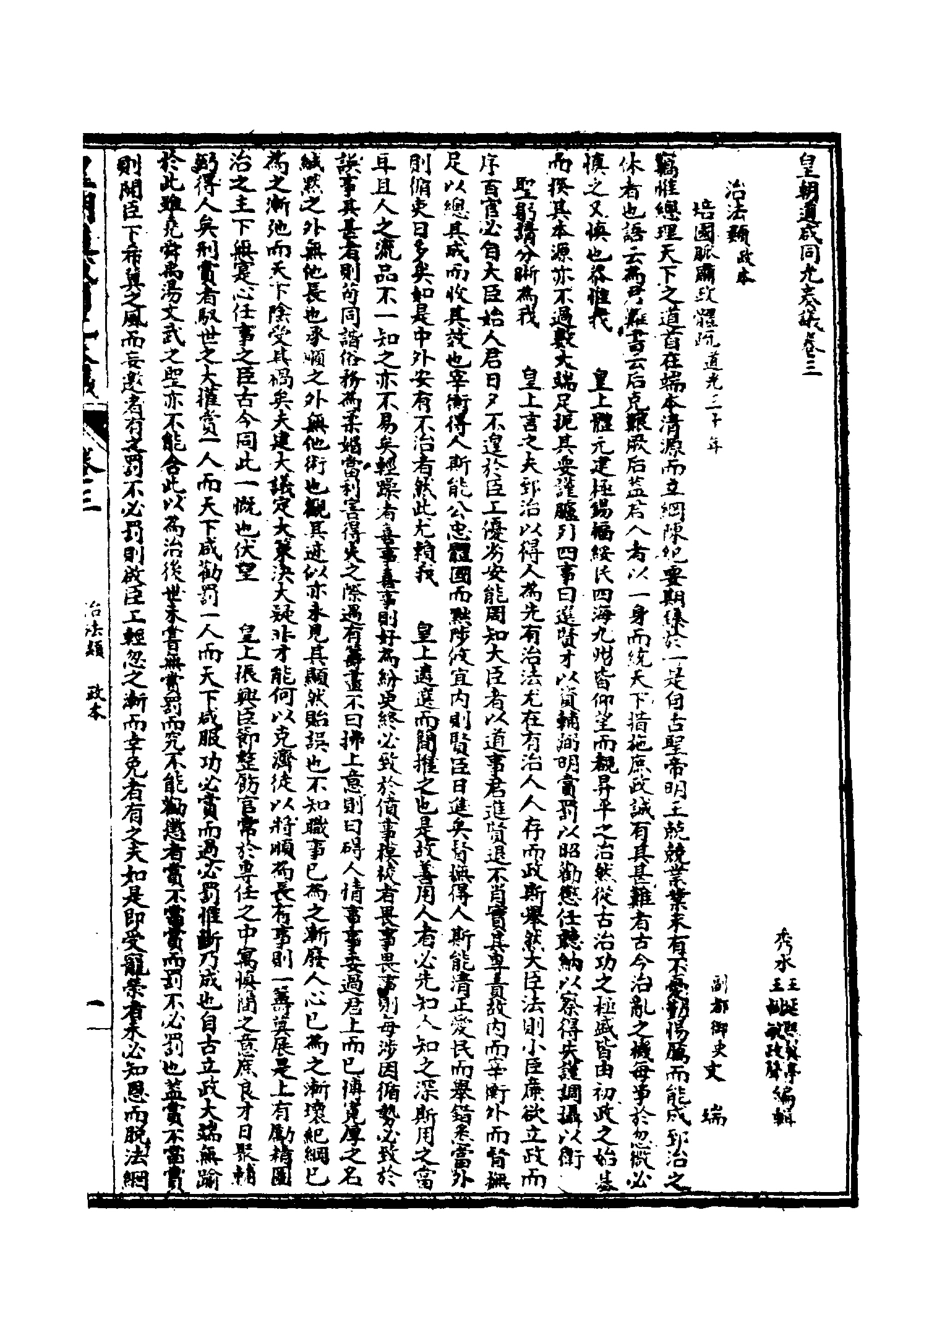 皇朝道咸同光奏議卷三
秀水王延熙賢亭王樹敏政聲編輯
治法類政本
培國脈肅政體疏道光三十年 副都御史文 瑞
竊惟總理天下之道首在端本清源而立綱陳紀要期臻於一是自古聖帝明王兢兢業業未有不憂勤惕厲而能成郅治之
休者也語云為君難書云后克艱厥后蓋君人者以一身而統天下措施庶政誠有甚其難者古今治亂之機每爭於忽微必
慎之又慎也恭惟我 皇上體元建極錫福綏氏四海九州皆仰望而覩昇平之治然從古治功之極盛皆由初政之始基
而揆其本源亦不過數大端足扼其要謹臚列四事曰選賢才以資輔弼明賞罰以昭勸懲任聽納以察得失謹調攝以衛
聖躬請分晰為我 皇上言之夫郅治以得人為先有治法尤在有治人人存而政斯舉然大臣法則小臣廉欲立政而
序百官必自大臣始人君日夕不遑於臣工優劣安能周知大臣者以道事君進賢退不肖實其專責故內而宰衡外而督撫
足以總其成而收其效也宰衡得人斯能公忠體國而黜陟攸宜內則賢臣日進矣督撫得人斯能清正愛民而舉錯悉當外
則循吏日多矣如是中外安有不治者然此尤賴我 皇上遴選而簡擢之也是故善用人者必先知人知之深斯用之當
耳且人之流品不一知之亦不易矣輕躁者喜事喜事則好為紛更終必致於僨事模稜者畏事畏事則每涉因循勢必致於
誤事其甚者則苟同諧俗務為柔媚當利害得失之際遇有籌畫不曰拂上意則曰碍人情事事委過君上而已博寬厚之名
緘默之外無他長也承順之外無他術也觀其迹似亦未見其顯然貽誤也不知職事已為之漸廢人心已為之漸壞紀綱已
為之漸弛而天下陰受其禍矣夫建大議定大策決大疑非才能何以克濟徒以將順為長有事則一籌莫展是上有勵精圖
治之主下無寔心任事之臣古今同此一慨也伏望 皇上振興臣節整飭官常於專任之中寓慎簡之意庶良才日聚輔
弼得人矣刑賞者馭世之大權賞一人而天下咸勸罰一人而天下咸服功必賞而過必罰惟斷乃成也自古立政大端無踰
於此雖堯舜禹湯文武之聖亦不能舍此以為治後世未嘗無賞罰而究不能勸懲者賞不當賞而罰不必罰也蓋賞不當賞
則開臣下希冀之風而妄邀者有之罰不必罰則啟臣工輕忽之漸而幸免者有之夫如是即受寵榮者未必知恩而脫法網
卷三 治法類 政本 一